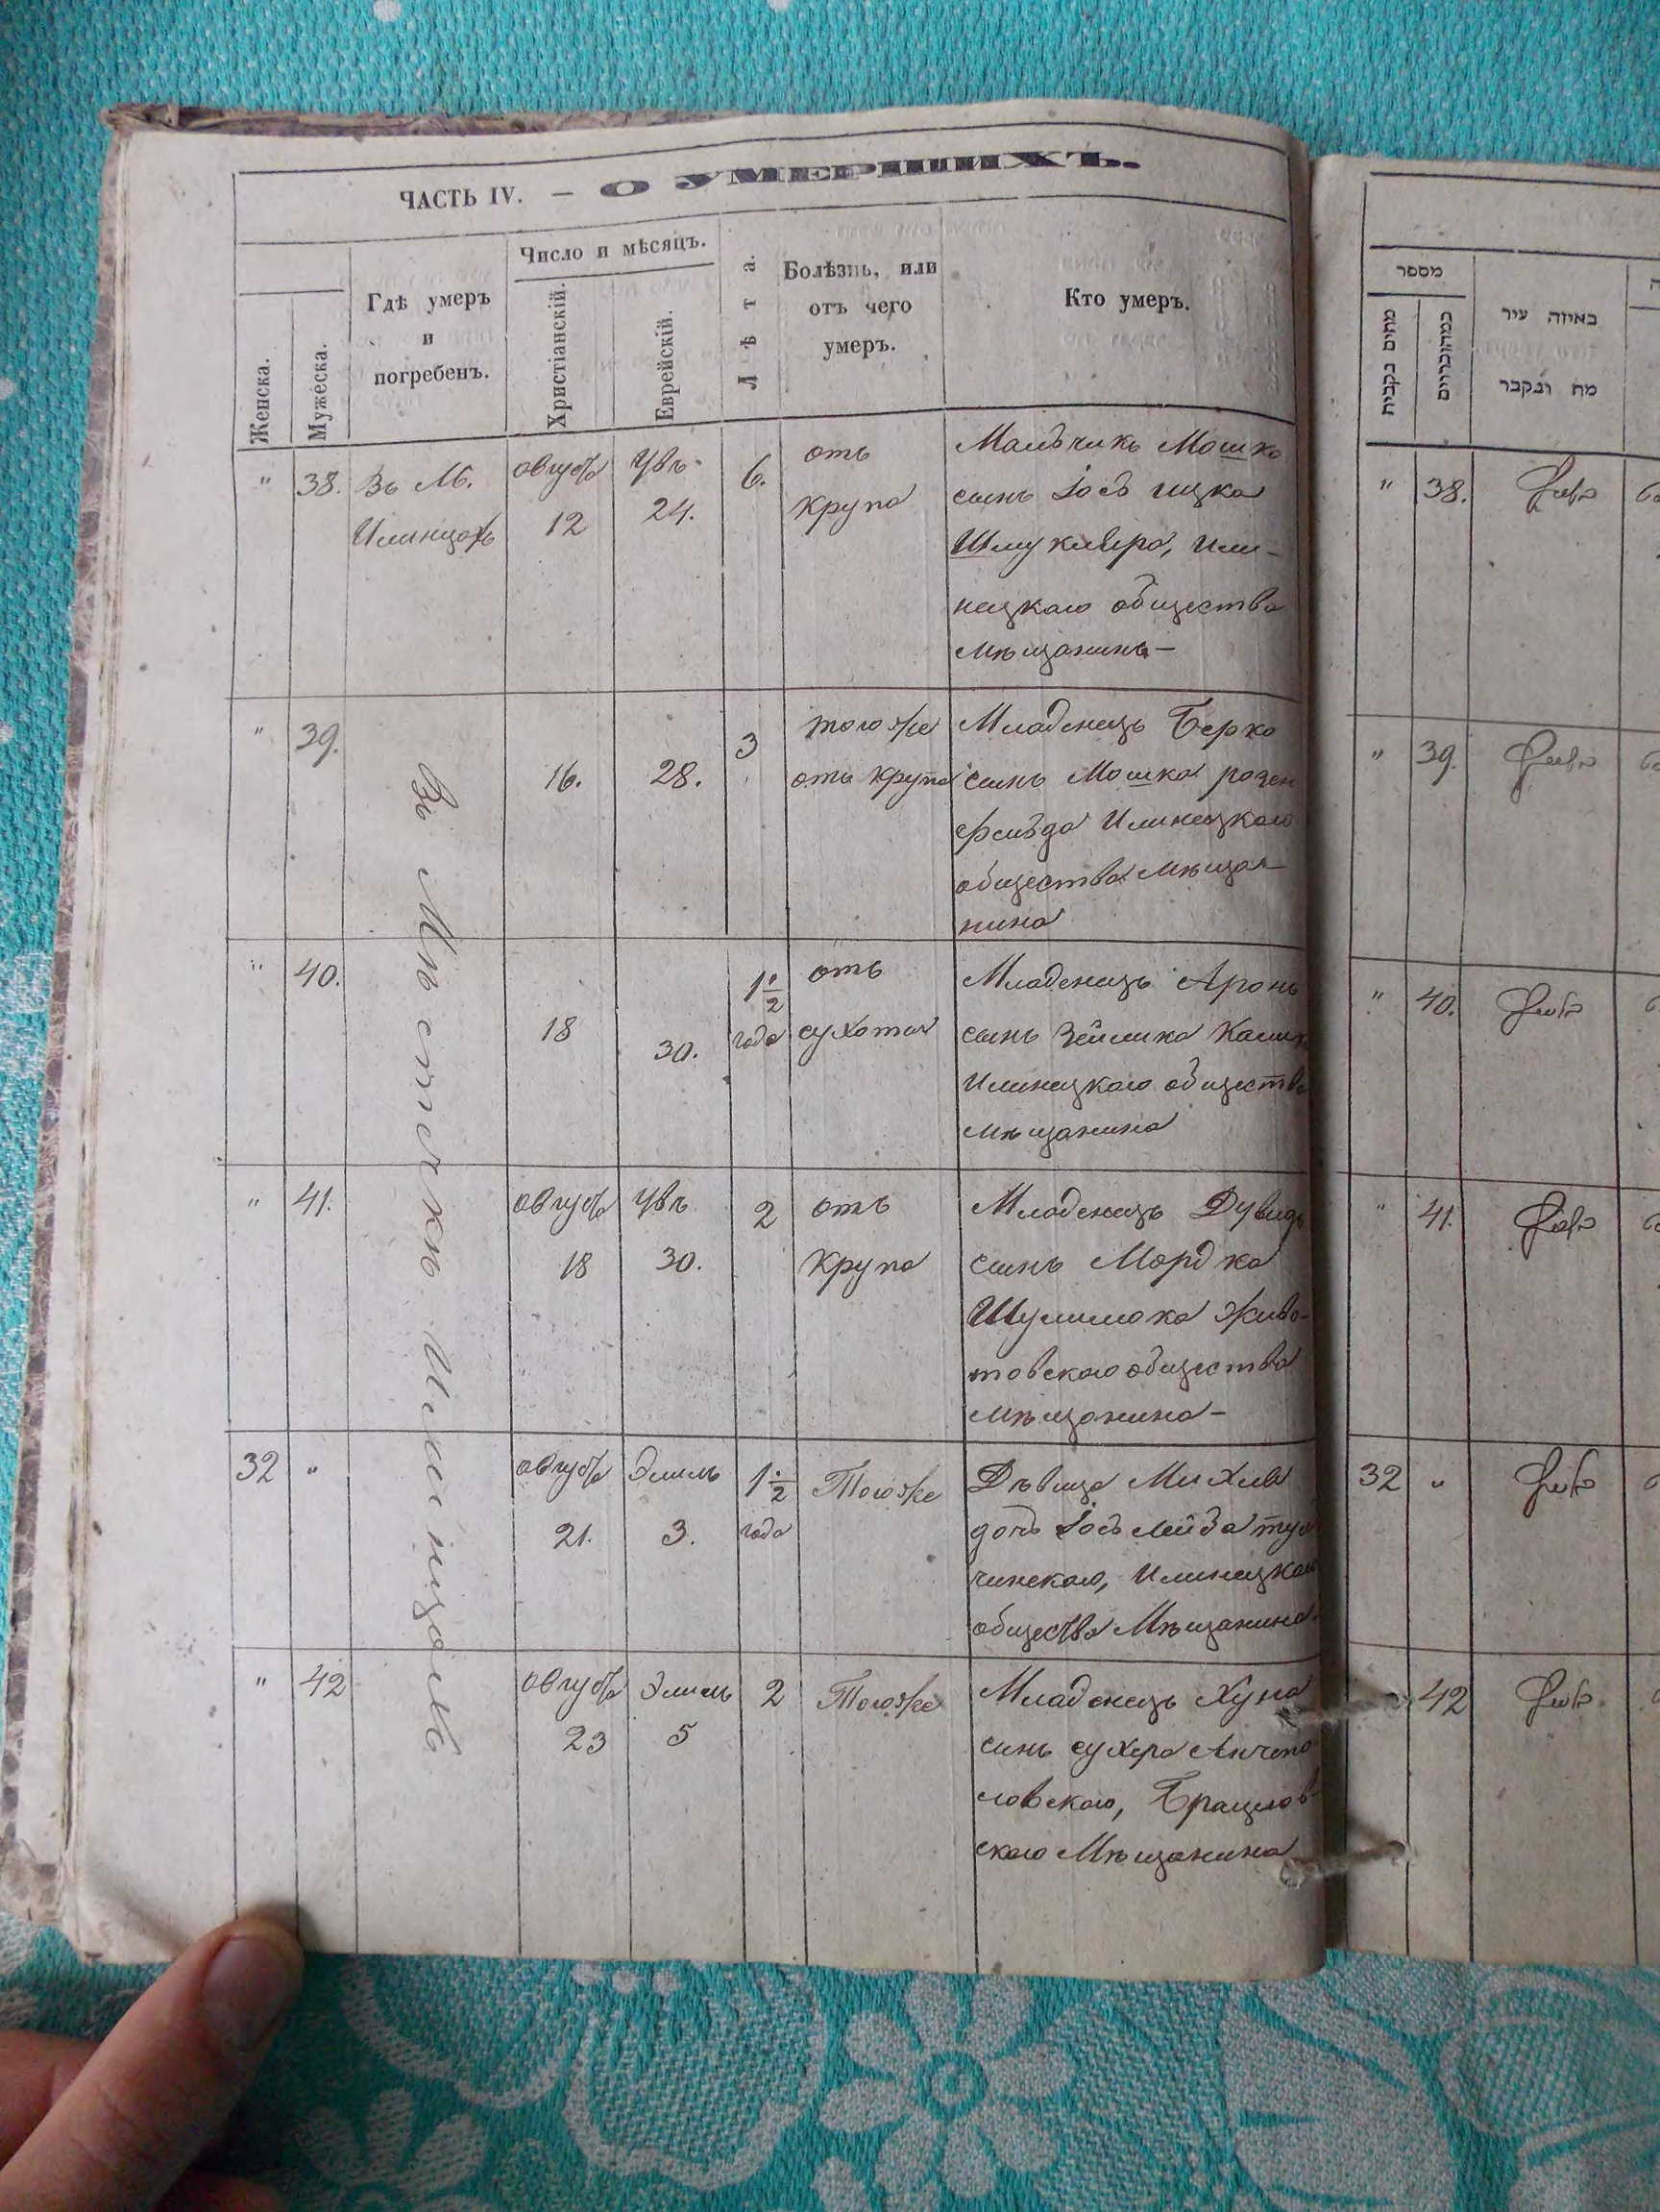 ЧАСТЬ IV. — О УМЕРШИХЪ.
Женска.
Мужеска.
Гдѣ умеръ
и
погребенъ.
Число и мѣсяцъ.
Христіанскій.
Еврейскій.
Лѣта.
Болѣзнь, или
отъ чего
умеръ.
Кто умеръ.
" 38. Въ М.
Илинцахъ
августа
12
24.
6.
отъ
крупа
Мальчикъ Мошко
сынъ Іось ицка
Шмуклера, Или-
нецкаго общества
мѣщанинъ —
" 39.
Въ Мѣстечкѣ Илинцахъ
16.
28.
3
тогоже
отъ крупа
Младенецъ Берко
сынъ Мошка розен
фельда Илинецкаго
общества мѣща-
нина
" 40.
18
30.
1 1/2
года
отъ
сухотъ
Младенецъ Аронъ
сынъ Зейлика
Илинецкаго общества
мѣщанина
" 41.
августа
18
30.
2
отъ
крупа
Младенецъ Дувидъ
сынъ Мордка
Шулимока Живо-
товскаго общества
мѣщанина —
32 "
августа
21.
Элюль
3.
1 1/2
года
Тогоже
Дѣвица Михля
дочь Іось Лейба туль
чинскаго, Илинецкаго
общества Мѣщанина
" 42
августа
23
Элюль
5
2
Тогоже
Младенецъ Хуна
сынъ сухера Антопо
ловскаго, Брацлав-
скаго Мѣщанина
מספר
מתים נקבות
באיזה עיר
מת ונקבר
" 38.
" 39.
" 40.
" 41.
32 "
42